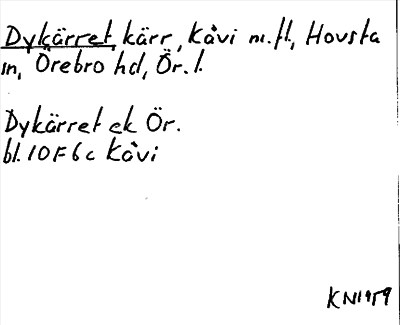 Dykärret, kärr, Kåvi m.fl., Hovsta
sn, Örebro hd, Ör. l.
Dykärret ek Ör.
bl. 10F6c Kåvi
KN1959